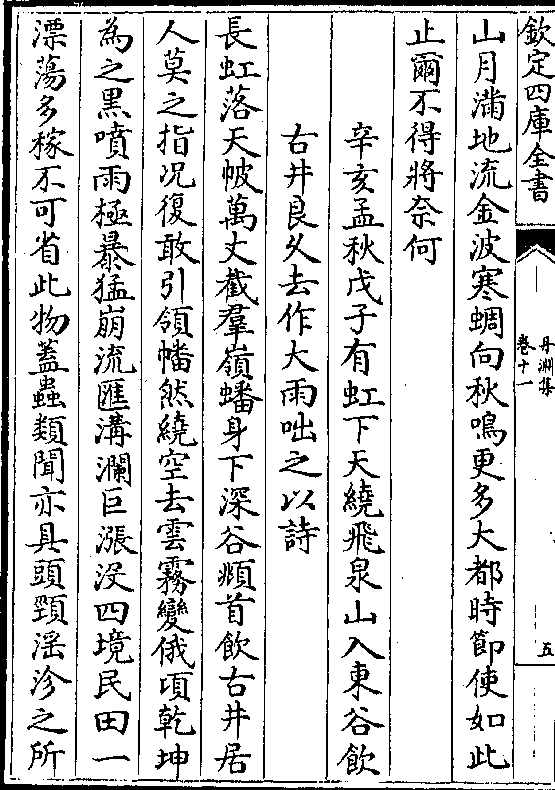 欽定四庫全書
丹淵集
卷十一
五
山月滿地流金波寒蜩向秋鳴更多大都時節使如此
止爾不得將奈何
辛亥孟秋戊子有虹下天繞飛泉山入東谷飲
古井良乆去作大雨咄之以詩
長虹落天帔萬丈截羣嶺蟠身下深谷頫首飲古井居
人莫之指况復敢引領幡然繞空去雲霧變俄頃乾坤
為之黒噴雨極暴猛崩流匯溝瀾巨漲沒四境民田一
漂蕩多稼不可省此物蓋蟲類聞亦具頭頸滛沴之所